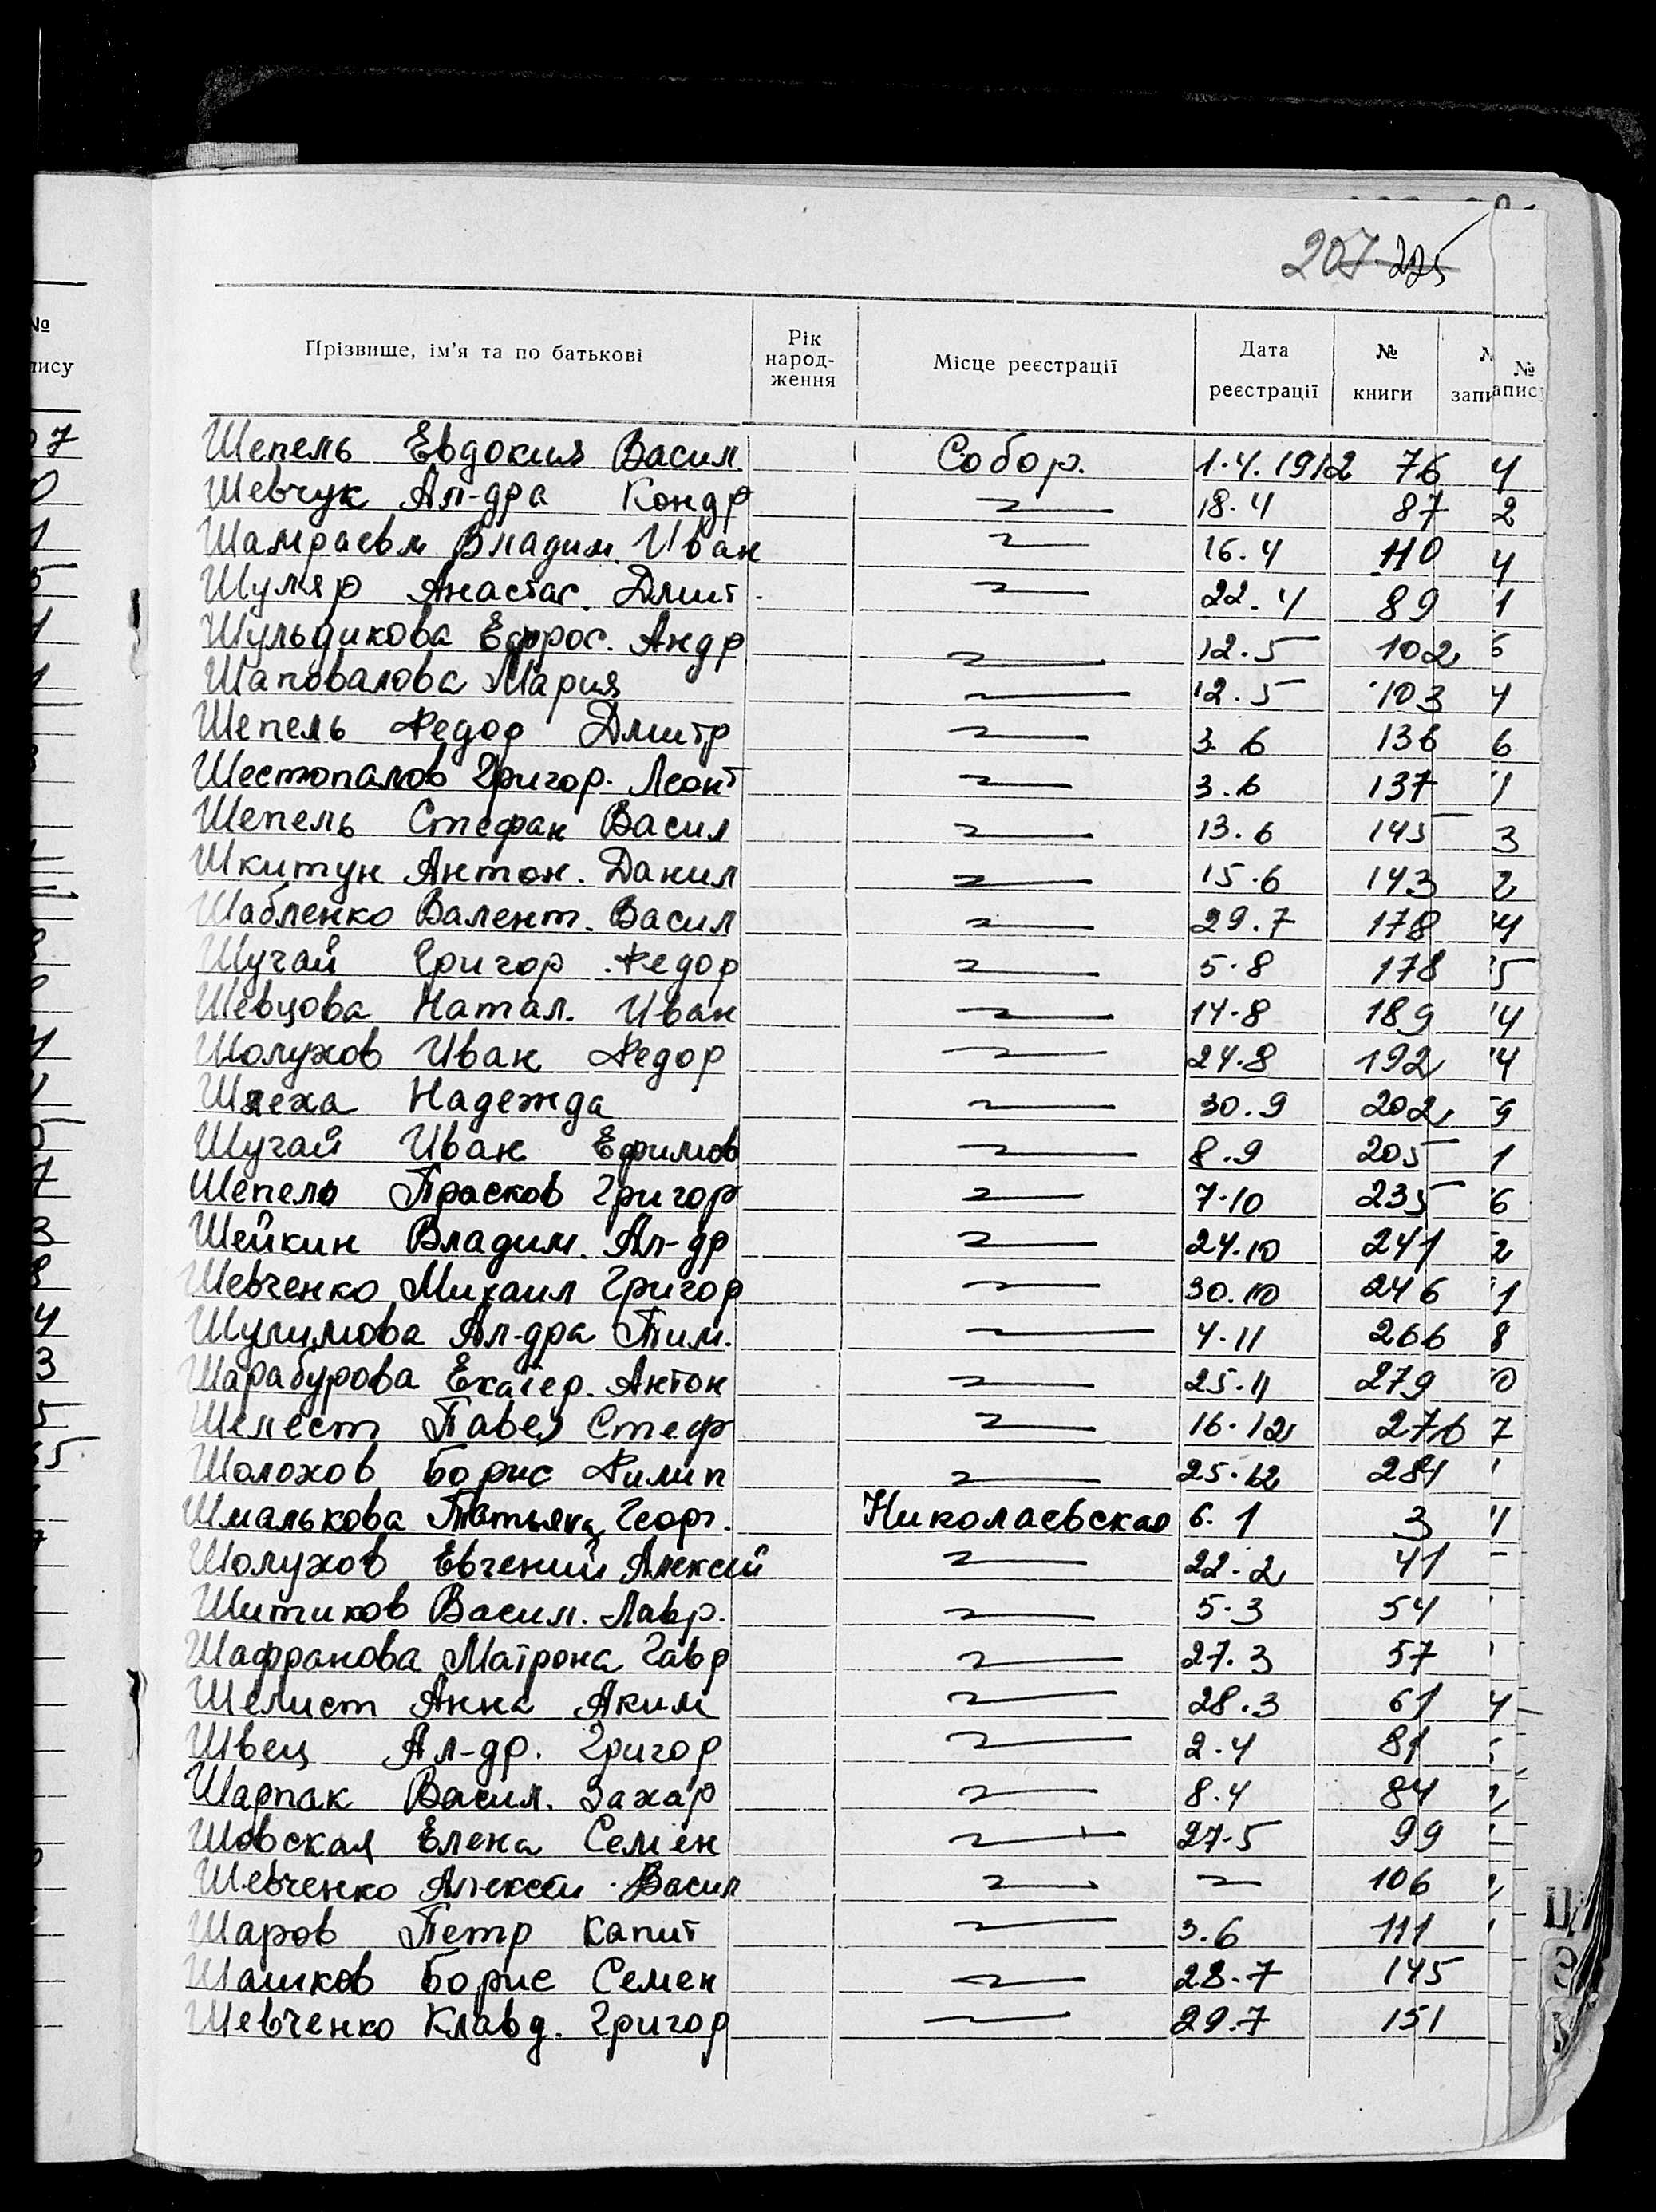 207. 275
Прізвище, ім'я та по батькові Рік народ- ження Місце реєстрації Дата реєстрації № книги № запи
Шепель Евдокия Васил. Собор. 1.4.1912 76
Шевчук Ал-дра Кондр 〃 18.4 87
Шамраевм Владим. Иван 〃 16.4 110
Шуляр Анастас. Дмит. 〃 22.4 89
Шульдикова Ефрос. Андр 〃 12.5 102
Шаповалова Мария 〃 12.5 103
Шепель Федор Дмитр 〃 3.6 136
Шестопалов Григор. Леонт 〃 3.6 137
Шепель Стефан Васил 〃 13.6 145
Шкитун Антон. Данил 〃 15.6 143
Шабленко Валент. Васил 〃 29.7 178
Шучай Григор Федор 〃 5.8 178
Шевцова Натал. Иван 〃 14.8 189
Шолухов Иван Федор 〃 24.8 192
Шлеха Надежда 〃 30.9 202
Шучай Иван Ефимов 〃 8.9 205
Шепель Прасков Григор 〃 7.10 235
Шейкин Владим. Ал-др 〃 24.10 241
Шевченко Михаил Григор 〃 30.10 246
Шулимова Ал-дра Тим. 〃 4.11 266
Шарабурова Екатер. Антон 〃 25.11 279
Шелест Павел Стеф 〃 16.12 276
Шолохов Борис Филип 〃 25.12 281
Шмалькова Татьяна Георг. Николаевская 6.1 3
Шолухов Евгений Алексей 〃 22.2 41
Шитиков Васил. Лавр. 〃 5.3 54
Шафранова Матрона Гавр 〃 27.3 57
Шелист Анна Аким 〃 28.3 61
Швец Ал-др. Григор 〃 2.4 81
Шарпак Васил. Захар 〃 8.4 84
Шовская Елена Семен 〃 27.5 99
Шевченко Алексей Васил 〃 〃 106
Шаров Петр Капит 〃 3.6 111
Шашков Борис Семен 〃 28.7 145
Шевченко Клавд. Григор 〃 29.7 151